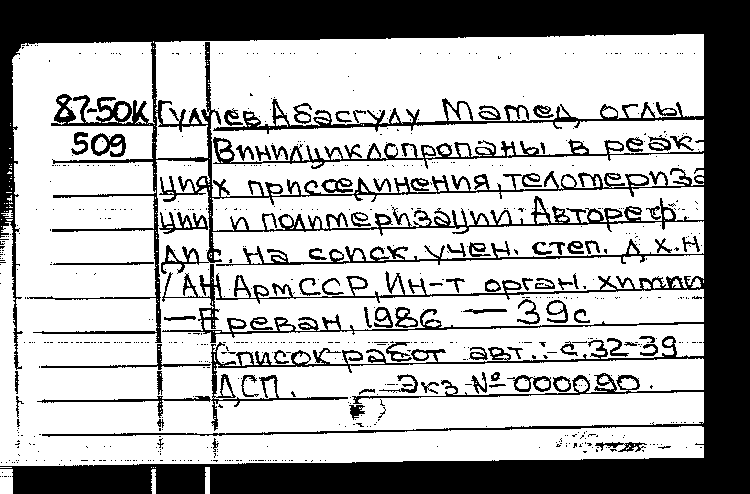 87-50К Гулиев, Абасгулу Мамед оглы
509 Винилциклопропаны в реак-
циях присоединения, теломериза
ции и полимеризации: Автореф.
дис. на соиск. учен. степ. д.х.н
/АН АрмССР, Ин-т орган. химии
—Ереван, 1986. — 39с.
Список работ авт.: с.32-39
ДСП. Экз. № 000090.